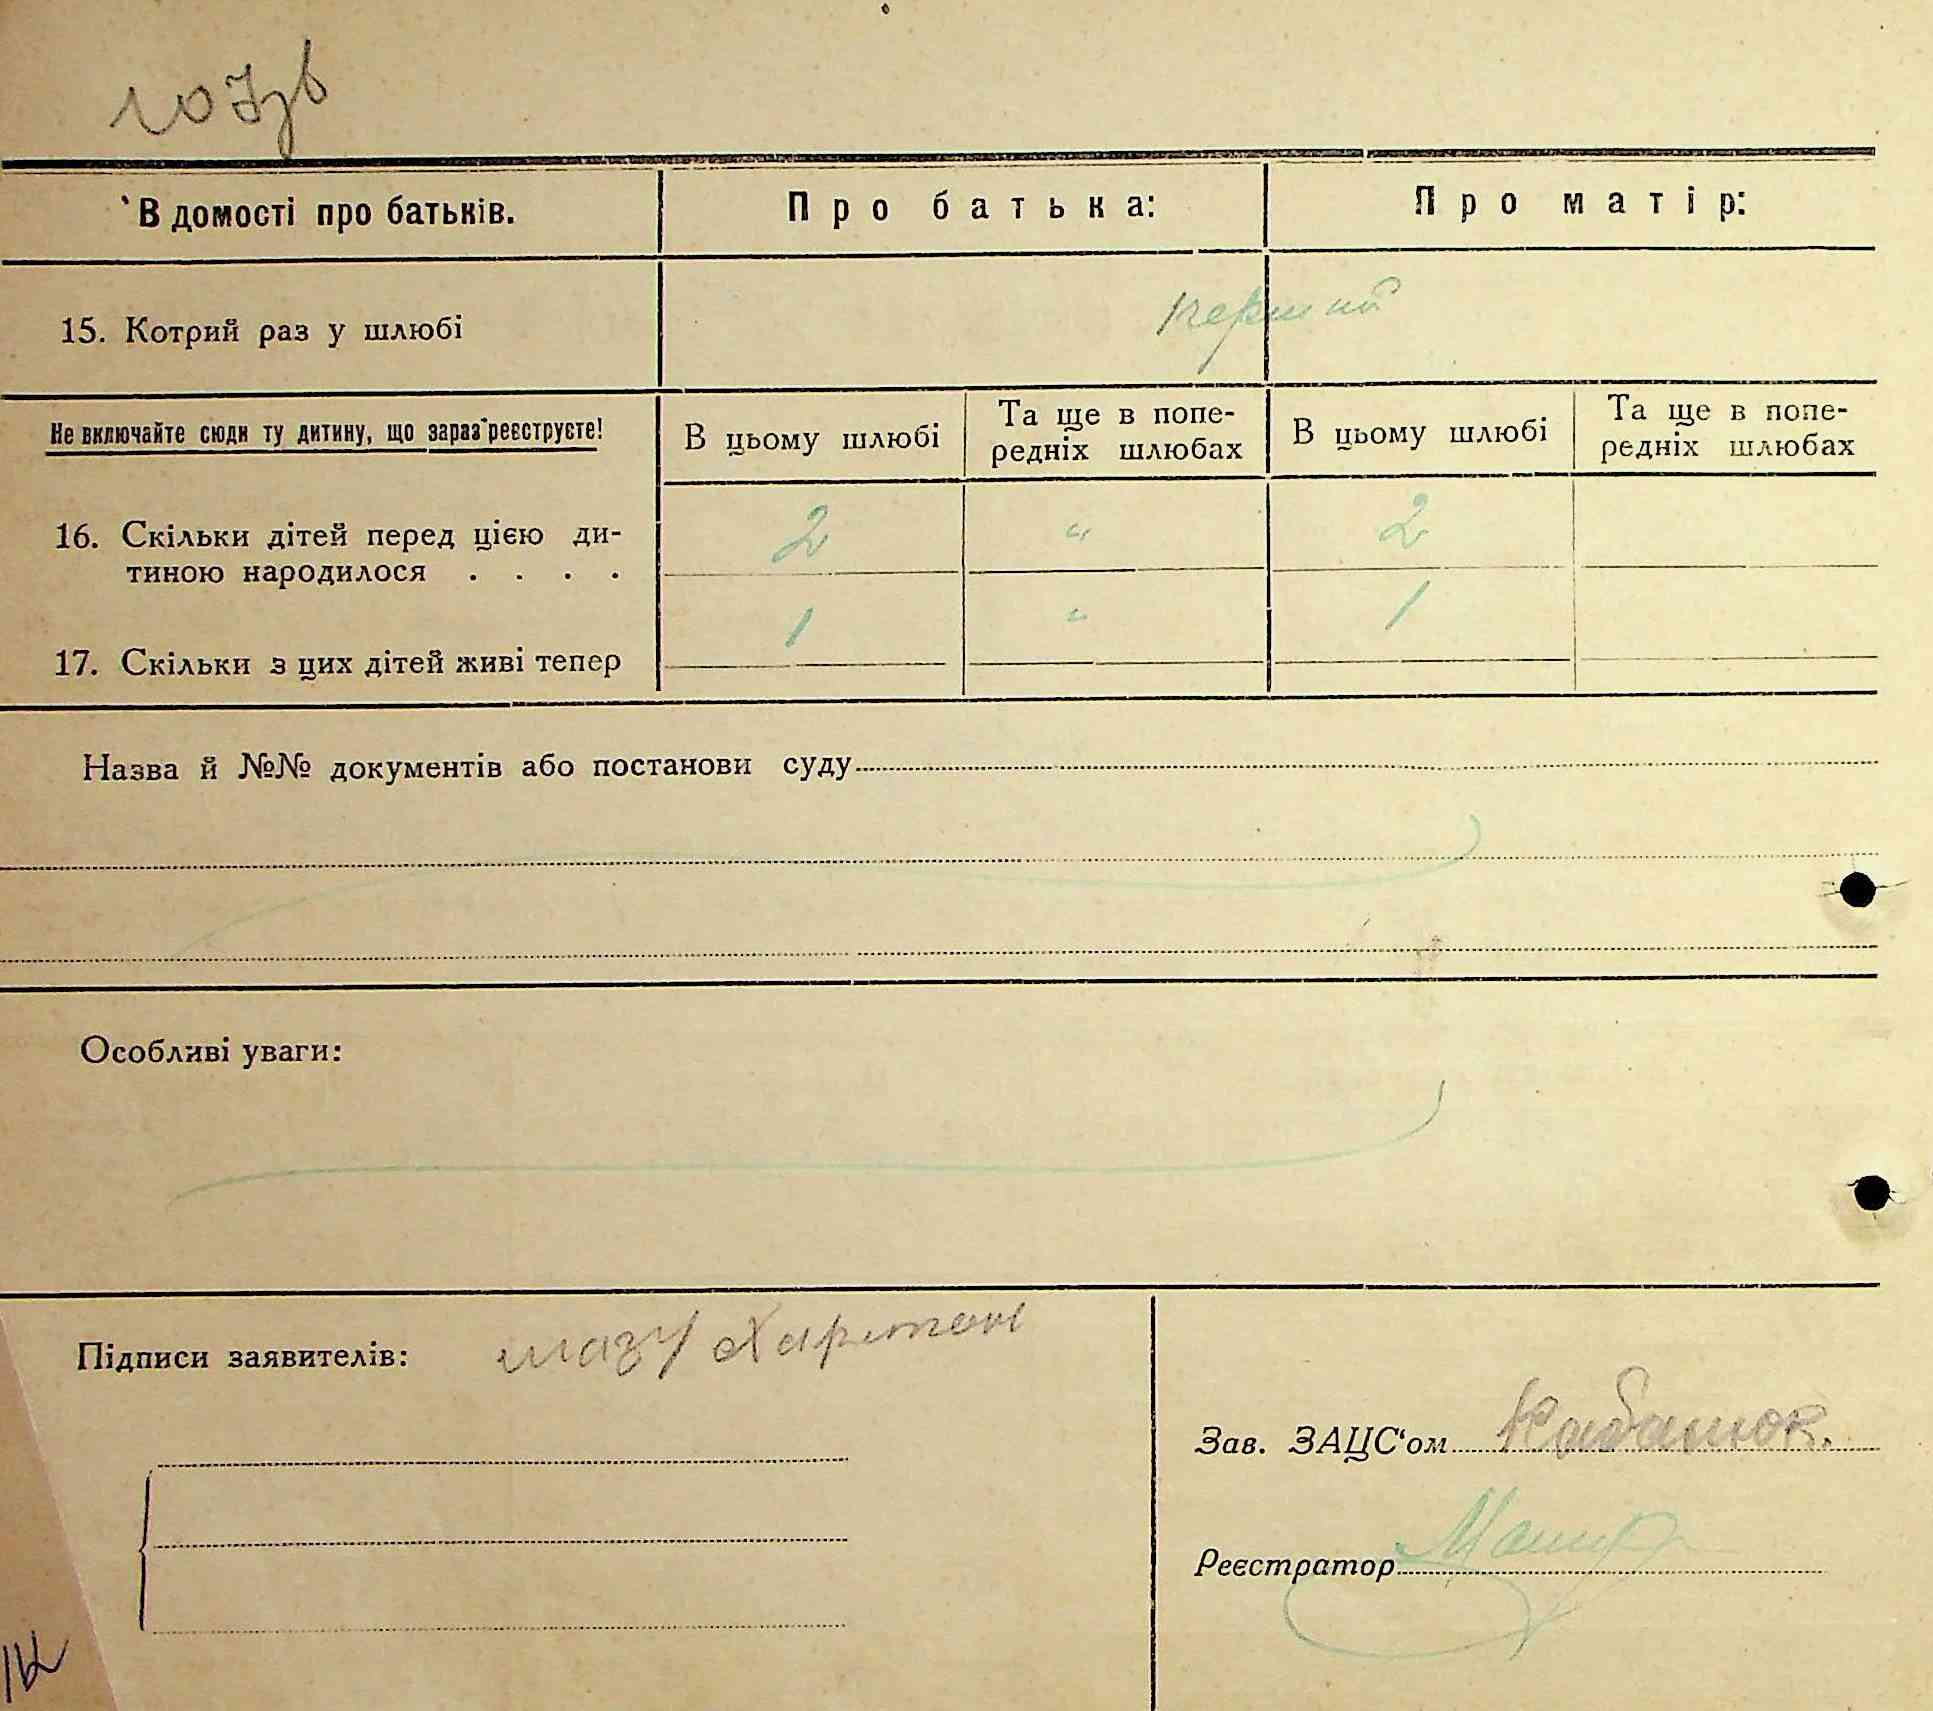 107зв
В домості про батьків. Про батька: Про матір:
15. Котрий раз у шлюбі перший
Не включайте сюди ту дитину, що зараз реєструєте!
В цьому шлюбі Та ще в попе- В цьому шлюбі Та ще в попе-
редніх шлюбах редніх шлюбах
16. Скільки дітей перед цією ди- 2 " 2
тиною народилося . . . .
17. Скільки з цих дітей живі тепер 1 " 1
Назва й №№ документів або постанови суду
Особливі уваги:
Підписи заявителів: мазу
Зав. ЗАЦС‘ом Кабанюк.
Реєстратор